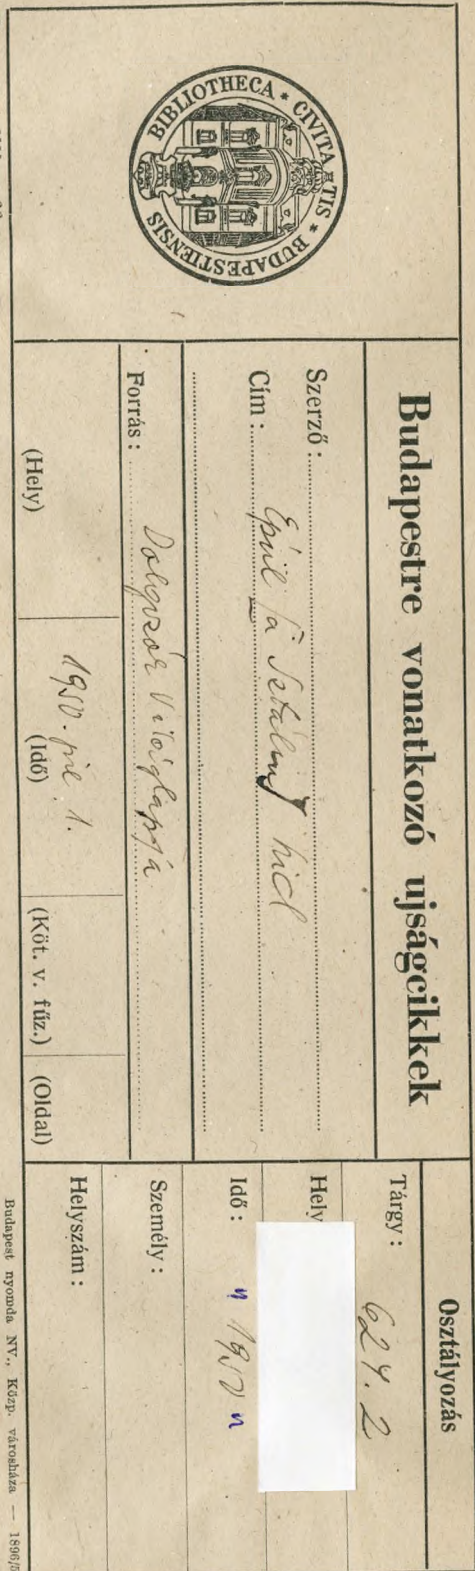 BIBLIOTHECA * CIVITATIS * BUDAPESTIENSIS
Budapestre vonatkozó ujságcikkek
Szerző :
Cím : Épül a Sztálin híd
Forrás : Dolgozók Világlapja
1950. júl 1.
(Hely) (Idő) (Köt. v. fűz.) (Oldal)
Osztályozás
Tárgy : 624.2
Hely
Idő : "1950"
Személy :
Helyszám :
Budapest nyomda NV., Közp. városháza — 1896/5